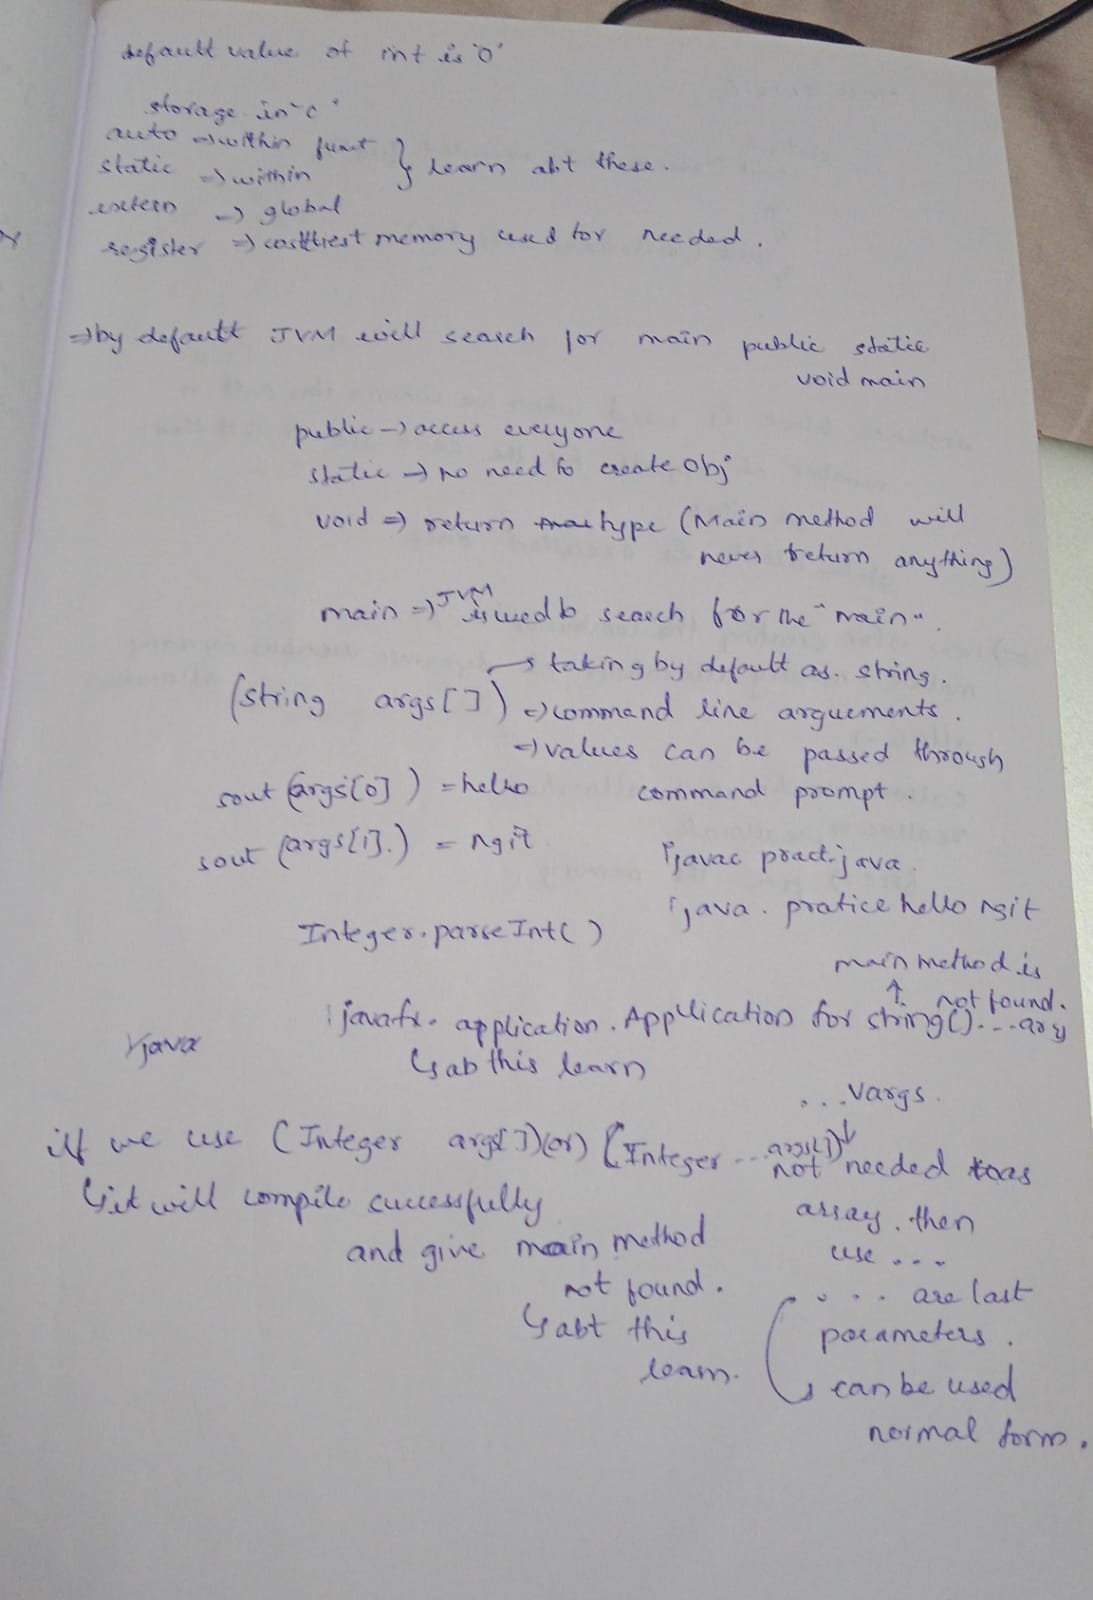 default value of int is '0'
storage in 'c'
auto => within funct } learn abt these.
static => within
extern => global
register => costtliest memory used for needed.
=> by default JVM will search for main public static
void main
public -> access everyone
static -> no need to create obj
void => return type (Main method will
never return anything)
main => JVM is used to search for the "main".
-> taking by default as. string.
(string args[]) => command line arguements.
=> values can be passed through
command prompt.
sout (args[0]) = hello
sout (args[1].) = ngit
javac pract.java.
java. pratice hello ngit
Integer.parseInt()
main method is
not found.
javafx. application. Application for string()....
java
abt this learn
...Vargs.
if we use (Integer args[])(or) (Integer ... args[])
not needed as
array. then
use ...
it will compile successfully
and give main method
not found.
abt this
learn.
... are last
parameters.
can be used
normal form.